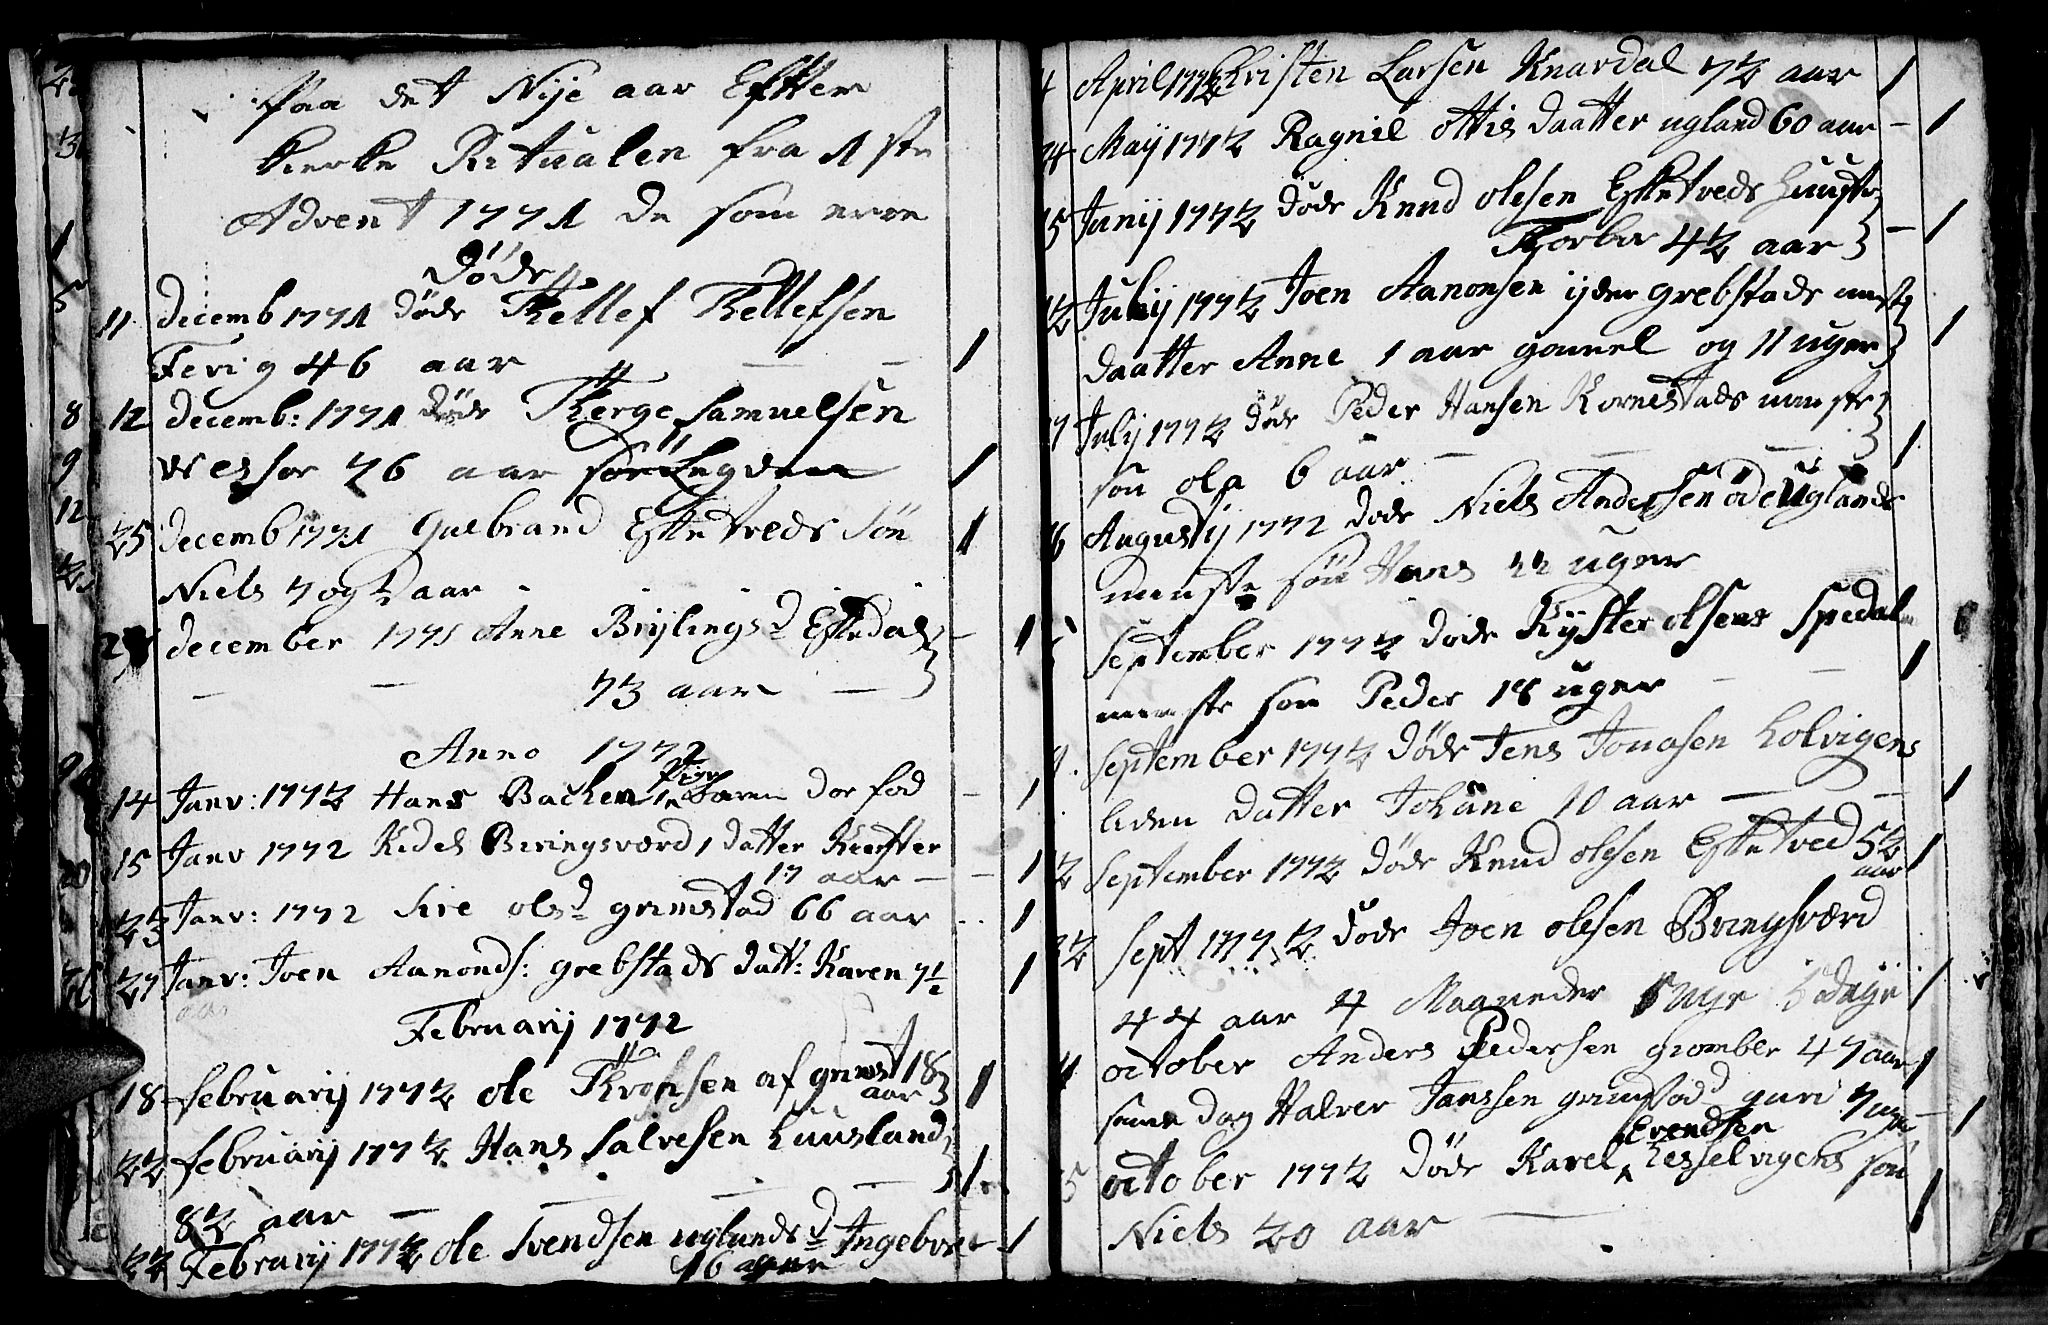 Paa det Nije aar Efter
kierke Ritualen fra 1 ste
Advent 1771 de som erre
døde
11 decemb 1771 døde Tellef Tellefsen
Fevig 46 aar — — 1
12 decemb: 1771 døde Terge Samuelsen
Vessør 76 aar 1
25 decemb 1771 Gulbrand Eftetveds søn 1
Niels 7 og aar
december 1771 Anne Brijlings d Eftedals — 1
— — 73 aar —
Anno 1772
14 Janv: 1772 Hans Bachen Pige 1 Barn dør fød — 1
15 Janv 1772 Kidel Bringsværd 1 datter
17 aar — — 1
23 Janv: 1772 Sire ols d grimstad 66 aar 1
27 Janv: Joen Aanonds: grebstads datt: Karen 7 1/2 1
aar
Februarij 1772
18 februarij 1772 ole af grimst 18
aar 1
22 februarij 1772 Hans Salvesen Luusland
82 aar — — — 1
22 Februarij 1772 ole Svendsen uglands d Ingebor 1
16
4 April 1772 Christen Larsen Knardal 72 aar 1
24 Maij 1772 Ragnil ottis daatter ugland 60 aar — 1
15 Junij 1772 døde Knud olesen Eftetveds hustr
Torbor 42 aar — 1
12 Julij 1772 Joen Aanonsen ijder grebstads
daatter Anne 1 aar gamel og 11 uger 1
17 Julij 1772 døde Peder Hansen Kornestads minste
søn ola 6 aar — — — 1
16 Augustij 1772 døde Niels Andersen øde Uglands
minste søn Hans 22 uger
September 1772 døde olsens Spedal
minste søn Peder 18 uger — — 1
9. September 1772 døde Jens Jonasen Holvigens
liden datter Johane 10 aar — — 1
12 September 1772 døde Knud olesen Eftetved 52
aar 1
22 Sept 1772 døde Joen olesen Bringsværd
44 aar 4 Maaneder uge dage 1
4 october Anders Pedersen gromber 47 aar 1
same dag Halver Janssen grimstad guri 7 — 1
Svendsen
5 october 1772 døde Karel Hesselvigens søn
Niels 20 aar — 1